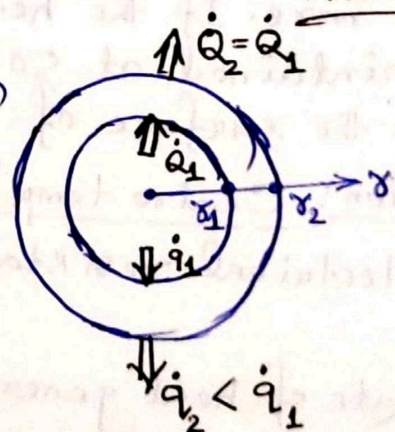 Q̇₂ = Q̇₁
Q̇₁
r₁
r₂
r
q̇₁
q̇₂ < q̇₁